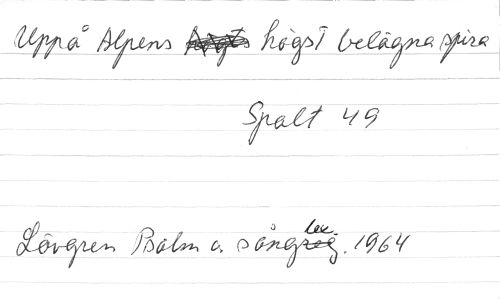 Uppå Alpens högst belägna spira
Spalt 49
Lövgren Psalm o. sånglex. 1964